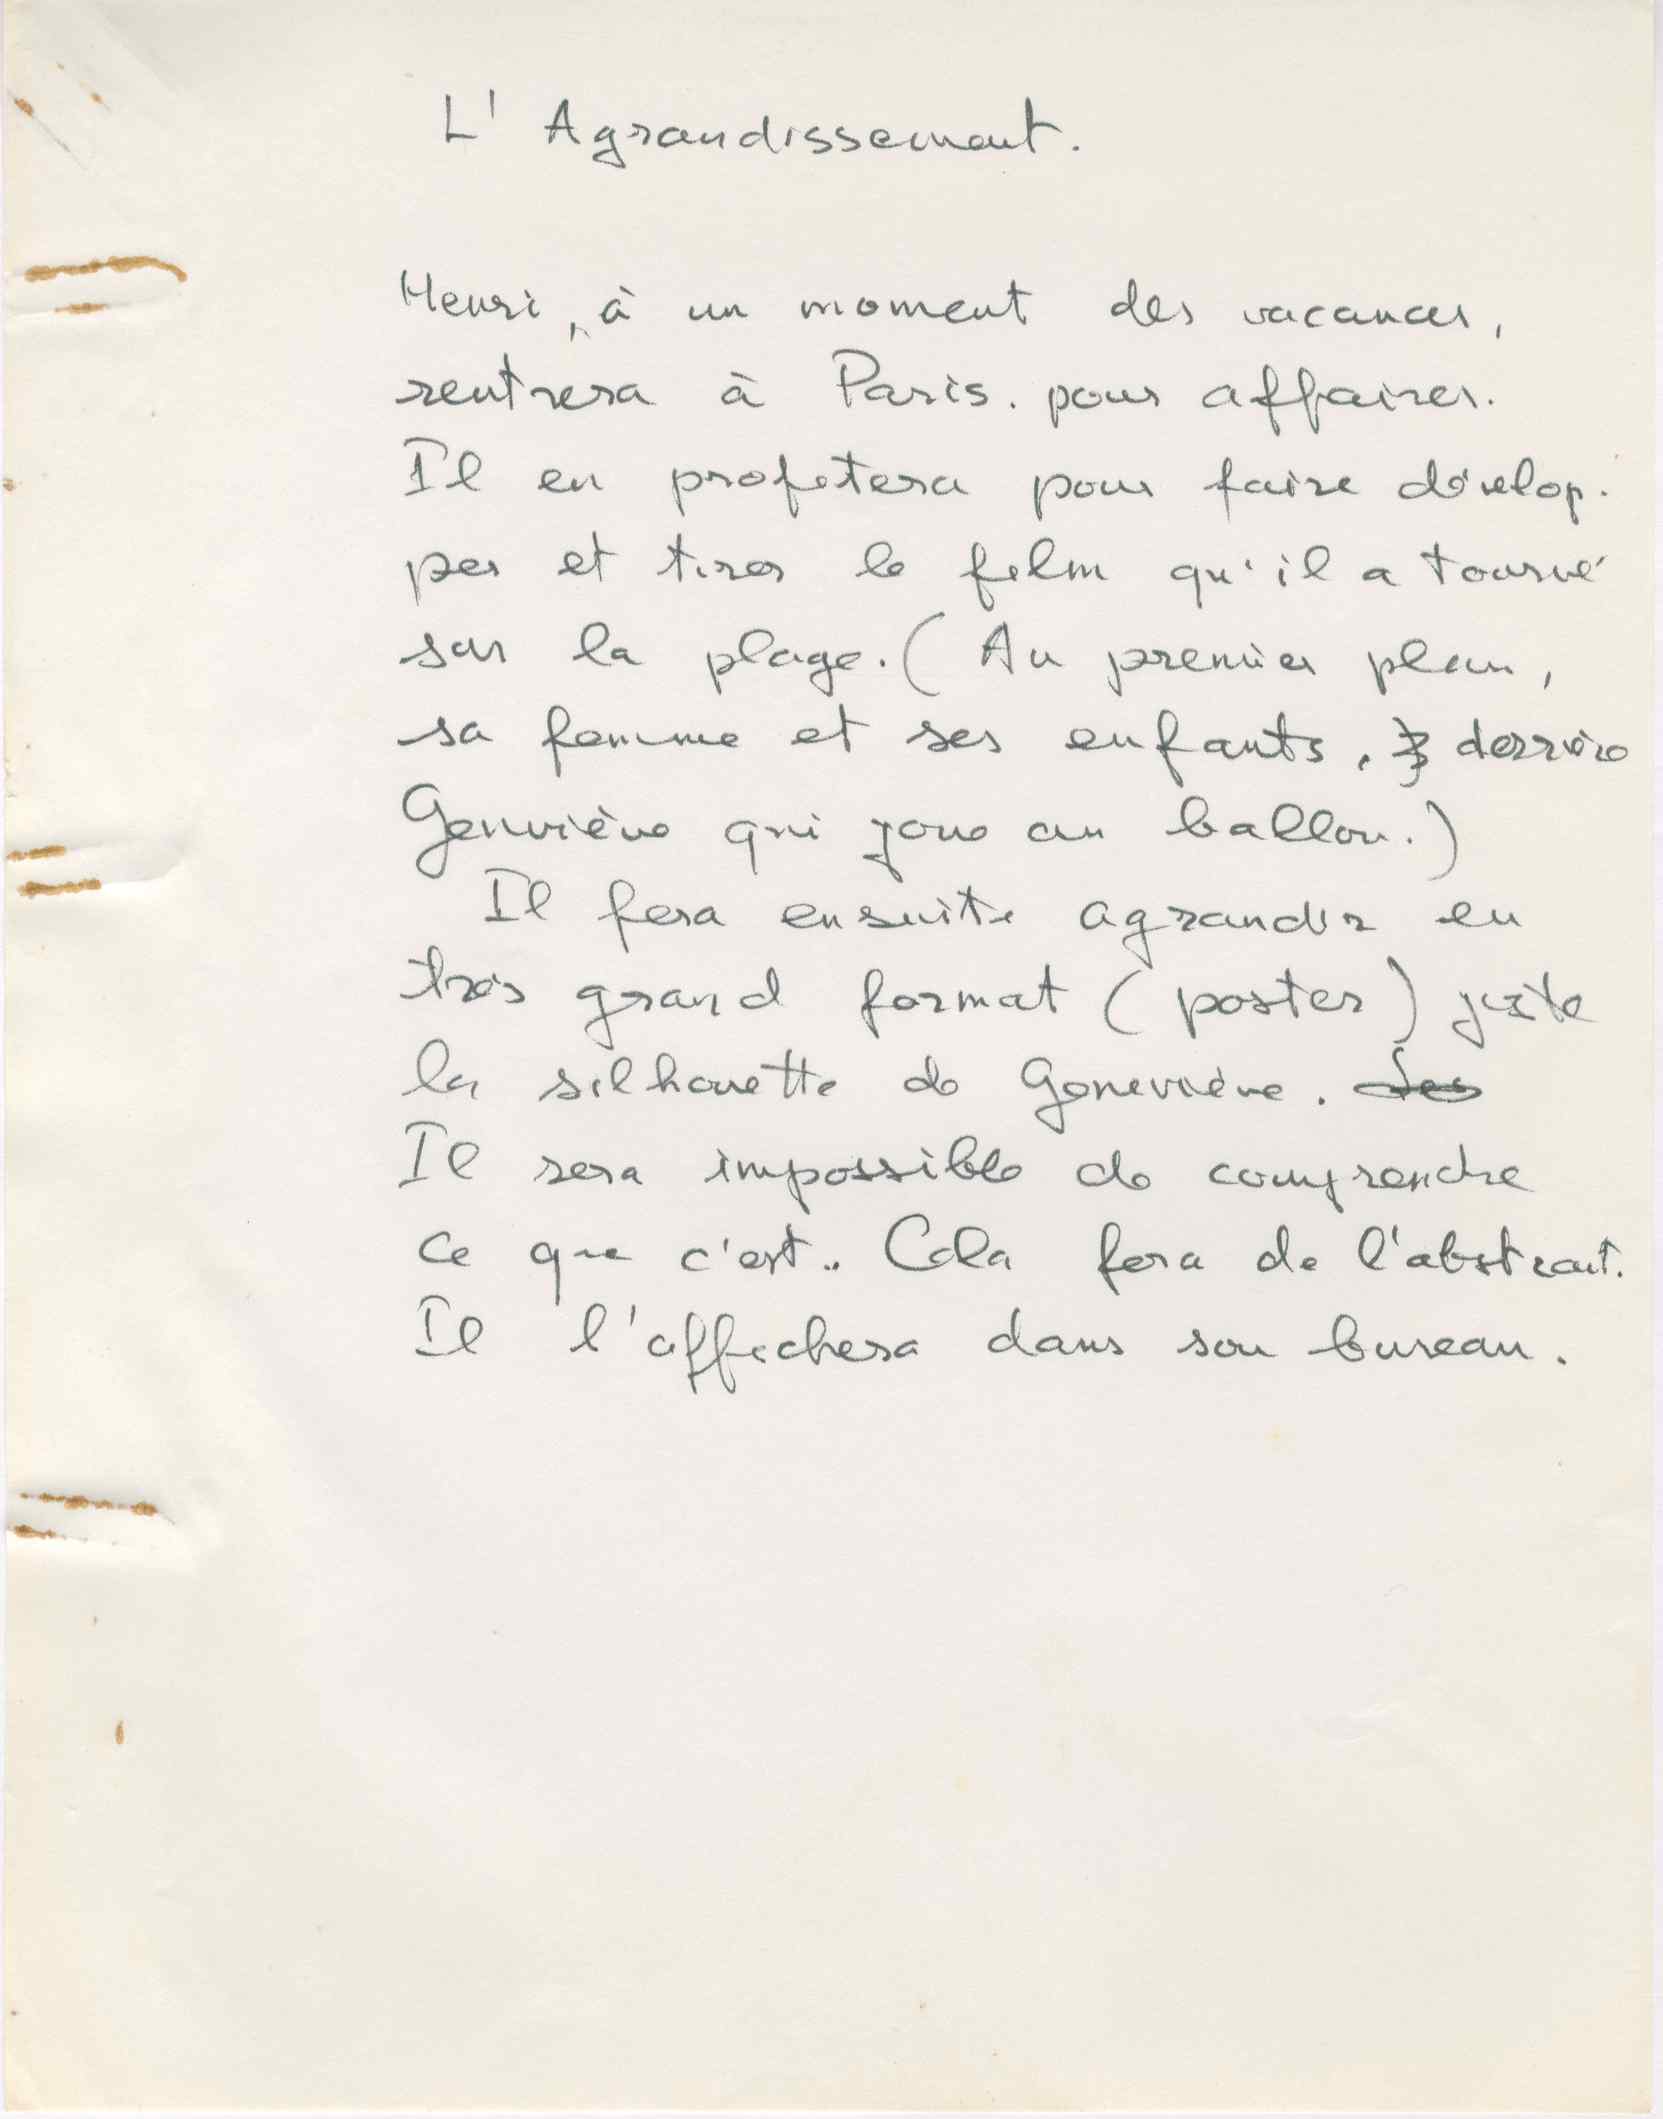 L'Agrandissement.
Henri, à un moment des vacances,
rentrera à Paris. pour affaires.
Il en profitera pour faire dévelop-
per et tirer le film qu'il a tourné
sur la plage. (Au premier plan,
sa femme et ses enfants, derrière
Geneviève qui joue au ballon.)
Il fera ensuite agrandir en
très grand format (poster) juste
la silhouette de Geneviève.
Il sera impossible de comprendre
ce que c'est.. Cela fera de l'abstrait.
Il l'affichera dans son bureau.